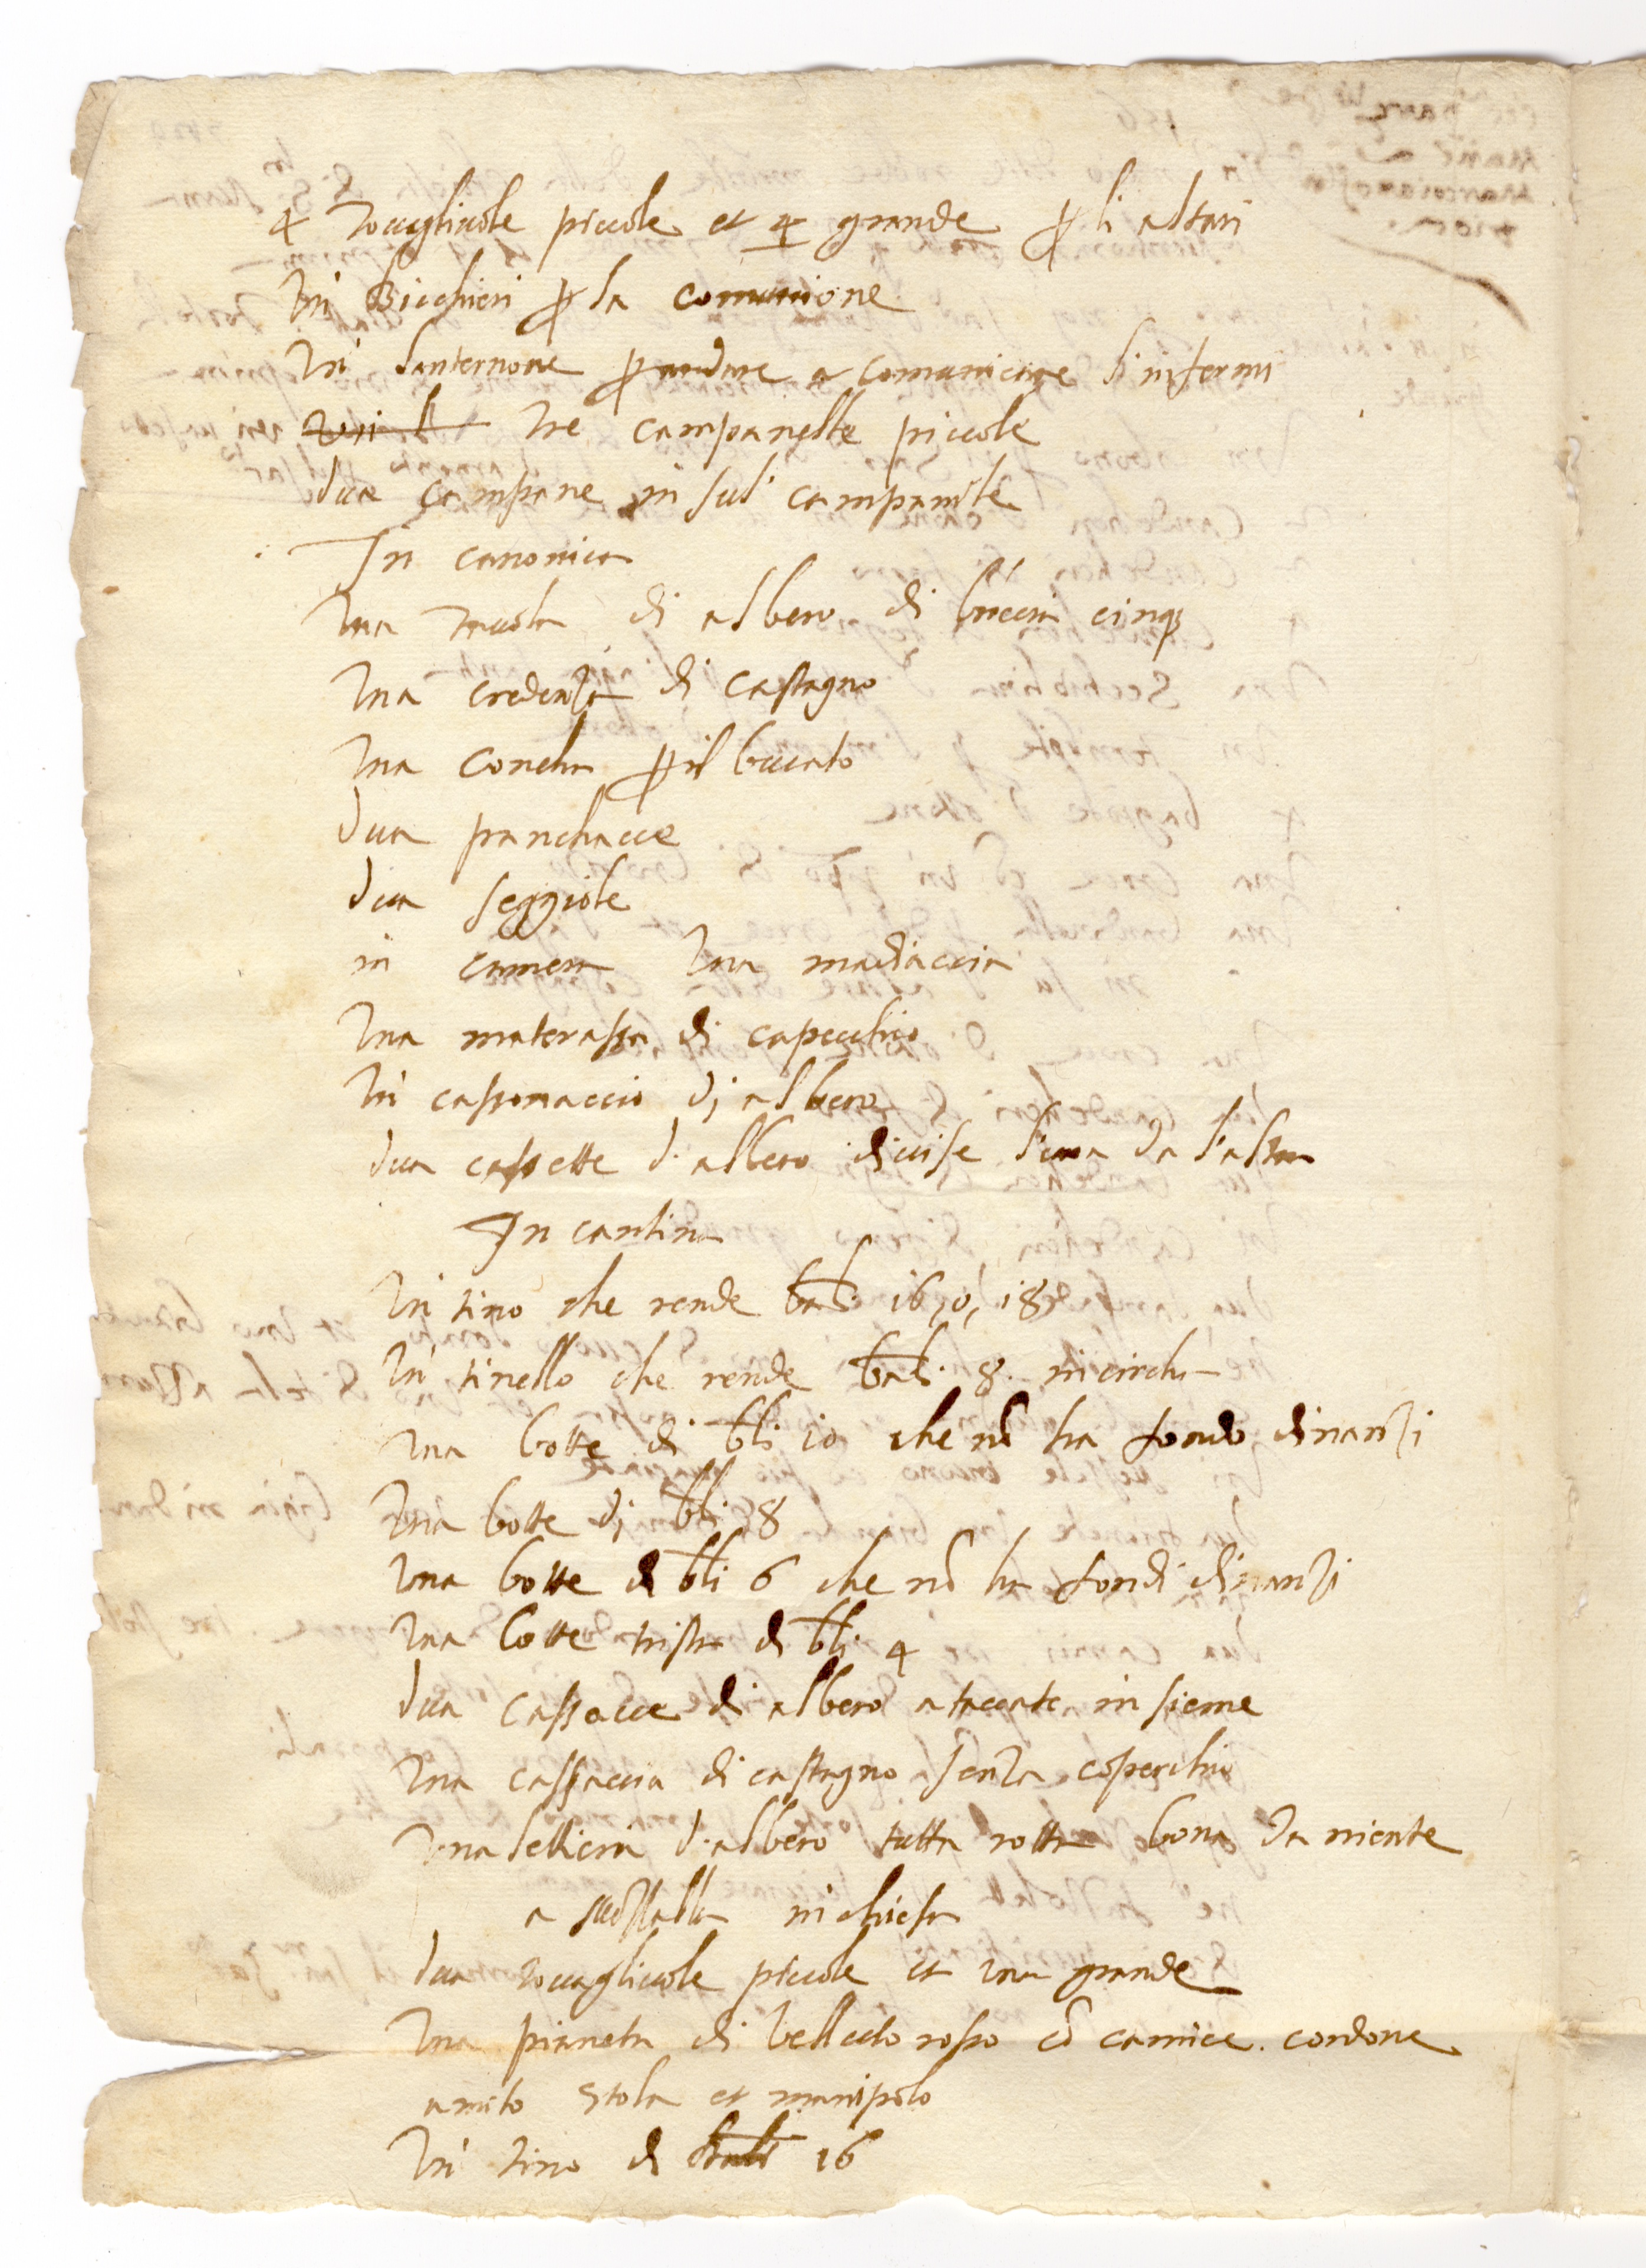 4 tovagliuole piccole et 4 grande p li altari
Un Bicchieri p la comunione
Un lanternone p andare a comunicare l'infermi
tre campanelle piccole
dua campane in sul campanile
In canonica
Una tavola di albero di braccia cinq
Una credenza di castagno
Una concha p il bucato
dua panchacce
dua seggiole
in camera Una madiaccia
Una materassa di capecchio
Un cassonaccio di albero
dua cassette d'albero divise l'una da l'altra
In cantina
Un tino che rende bli 16, o, 18
Un tinello che rende bli 8 in circha
Una botte di bli 10 che nō ha fondo dinanzi
Una botte di bli 8
Una botte di bli 6 che nō ha fondi dinanzi
Una botte trista di bli 4
dua cassacce di albero ataccate insieme
Una cassaccia di castagno senza coperchio
Una lettiera d'albero tutta rotta bona da niente
a in chiesa
dua tovagliuole piccole et una grande
Una pianeta di velluto rosso cō camice. cordone
amito stola et manipolo
Un tino di 16